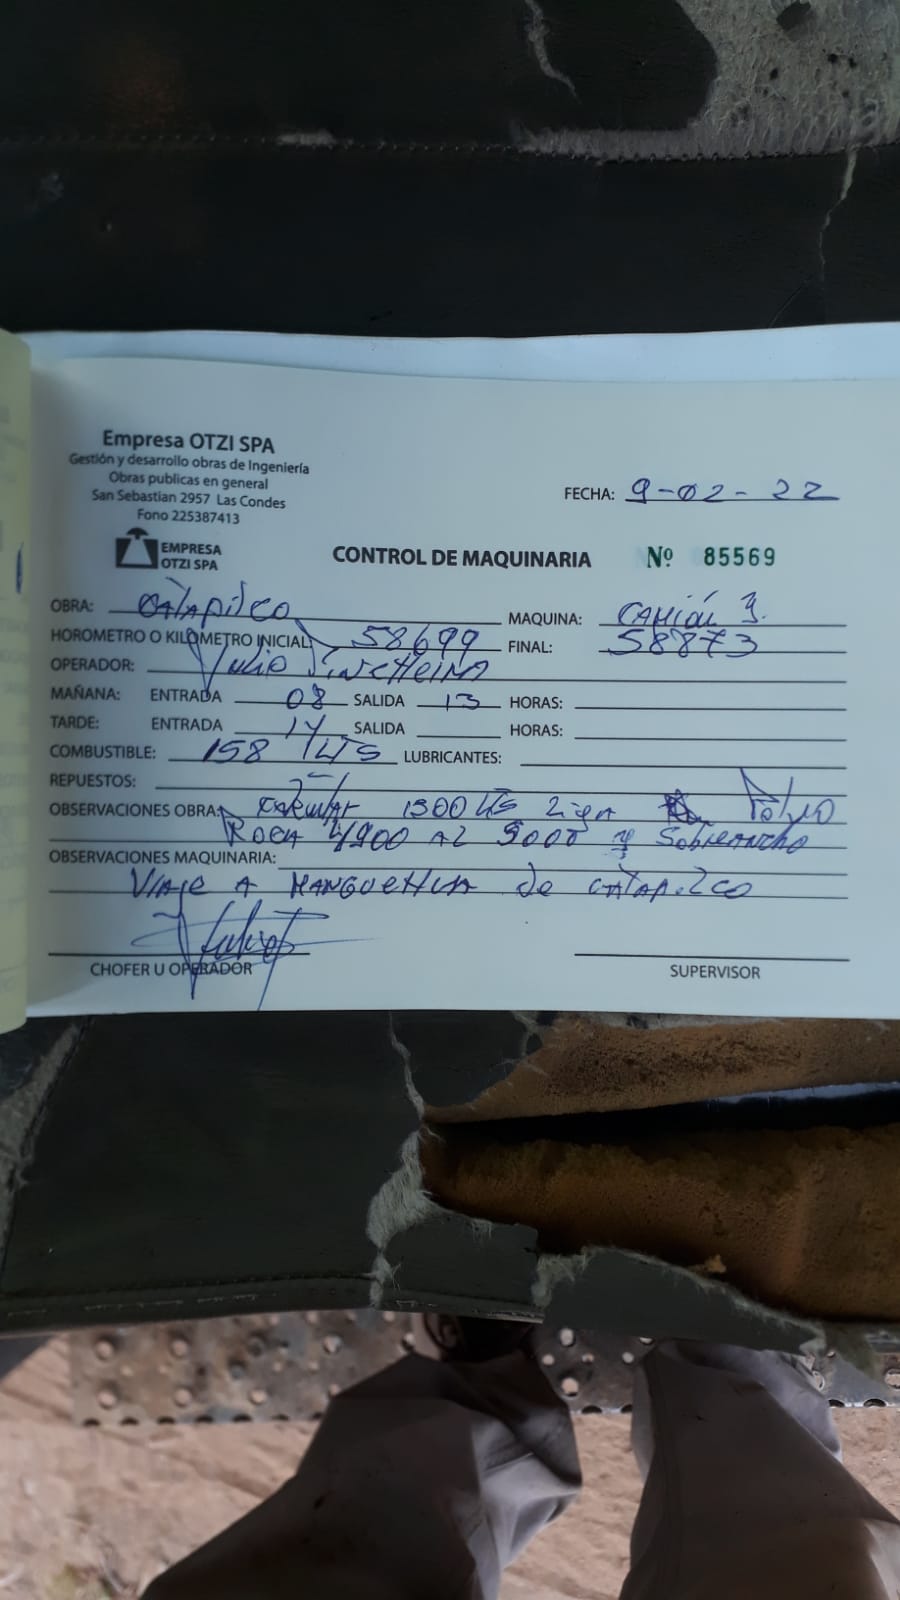 Empresa OTZI SPA
Gestión y desarrollo obras de Ingeniería
Obras publicas en general
San Sebastian 2957 Las Condes
Fono 225387413
FECHA: 9-02-22
EMPRESA
OTZI SPA
CONTROL DE MAQUINARIA Nº 85569
OBRA: CATAPILCO MAQUINA: CAMIÓN 3.
HOROMETRO O KILOMETRO INICIAL: 58699 FINAL: 58873
OPERADOR: Julio
MAÑANA: ENTRADA 08 SALIDA 13 HORAS:
TARDE: ENTRADA 14 SALIDA HORAS:
COMBUSTIBLE: 158 LTS LUBRICANTES:
REPUESTOS:
OBSERVACIONES OBRA: 1300 LTS Liga Polvo
ROCA 4900 AL 5000 y Sobreancho
OBSERVACIONES MAQUINARIA:
Viaje A MANGUERA de CATAPILCO
CHOFER U OPERADOR SUPERVISOR